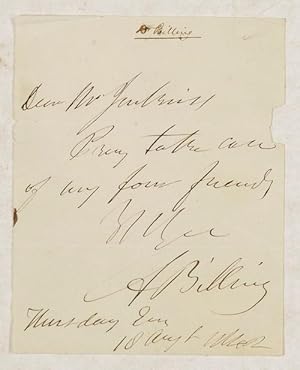 Dr Billing
Dear Mr Jenkins
Pray take care
of my four friends
A Billing
Thursday Eve
18 Augt